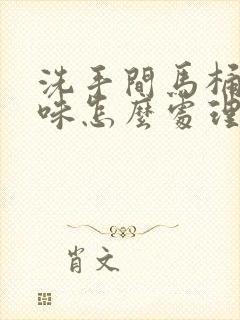 洗手間馬桶
味怎麼處理
肖文